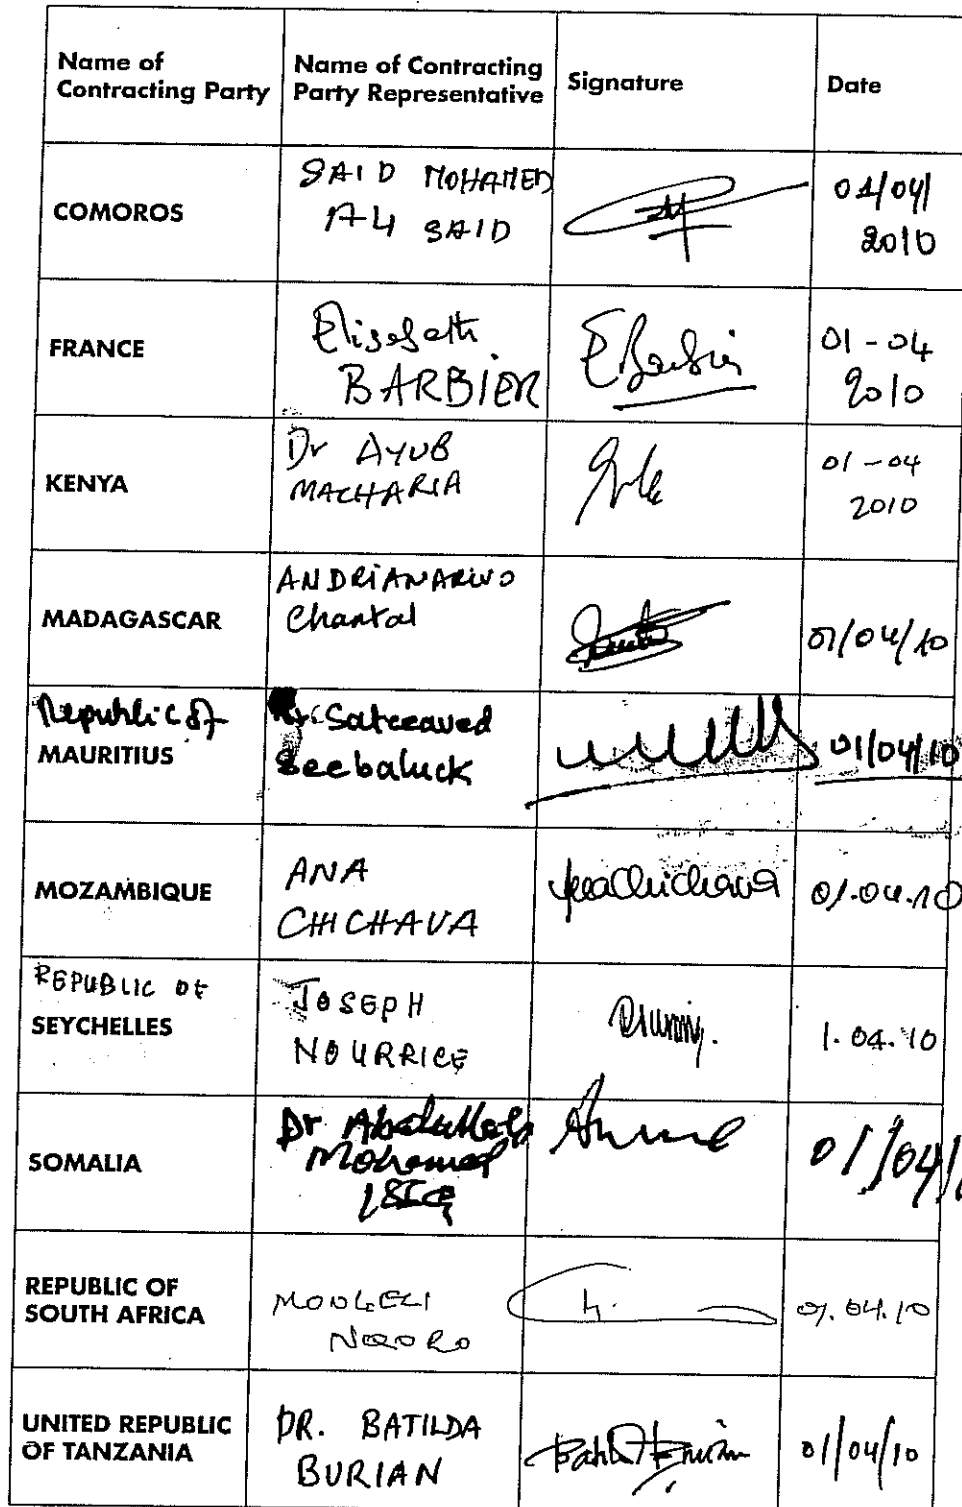 Name of
Contracting Party
Name of Contracting
Party Representative
Signature
Date
COMOROS
SAID MOHAMED
ALI SAID
01/04/
2010
FRANCE
Elisabeth
BARBIER
EBarbier
01-04
2010
KENYA
Dr AYUB
MACHARIA
01-04
2010
MADAGASCAR
ANDRIANARIVO
Chantal
01/04/10
Republic of
MAURITIUS
Satceaved
Seebaluck
01/04/10
MOZAMBIQUE
ANA
CHICHAVA
AnaChichava
01.04.10
REPUBLIC OF
SEYCHELLES
JOSEPH
NOURRICE
1.04.10
SOMALIA
Dr Abdullahi
Mohamed
01/04/
REPUBLIC OF
SOUTH AFRICA
01.04.10
UNITED REPUBLIC
OF TANZANIA
DR. BATILDA
BURIAN
01/04/10